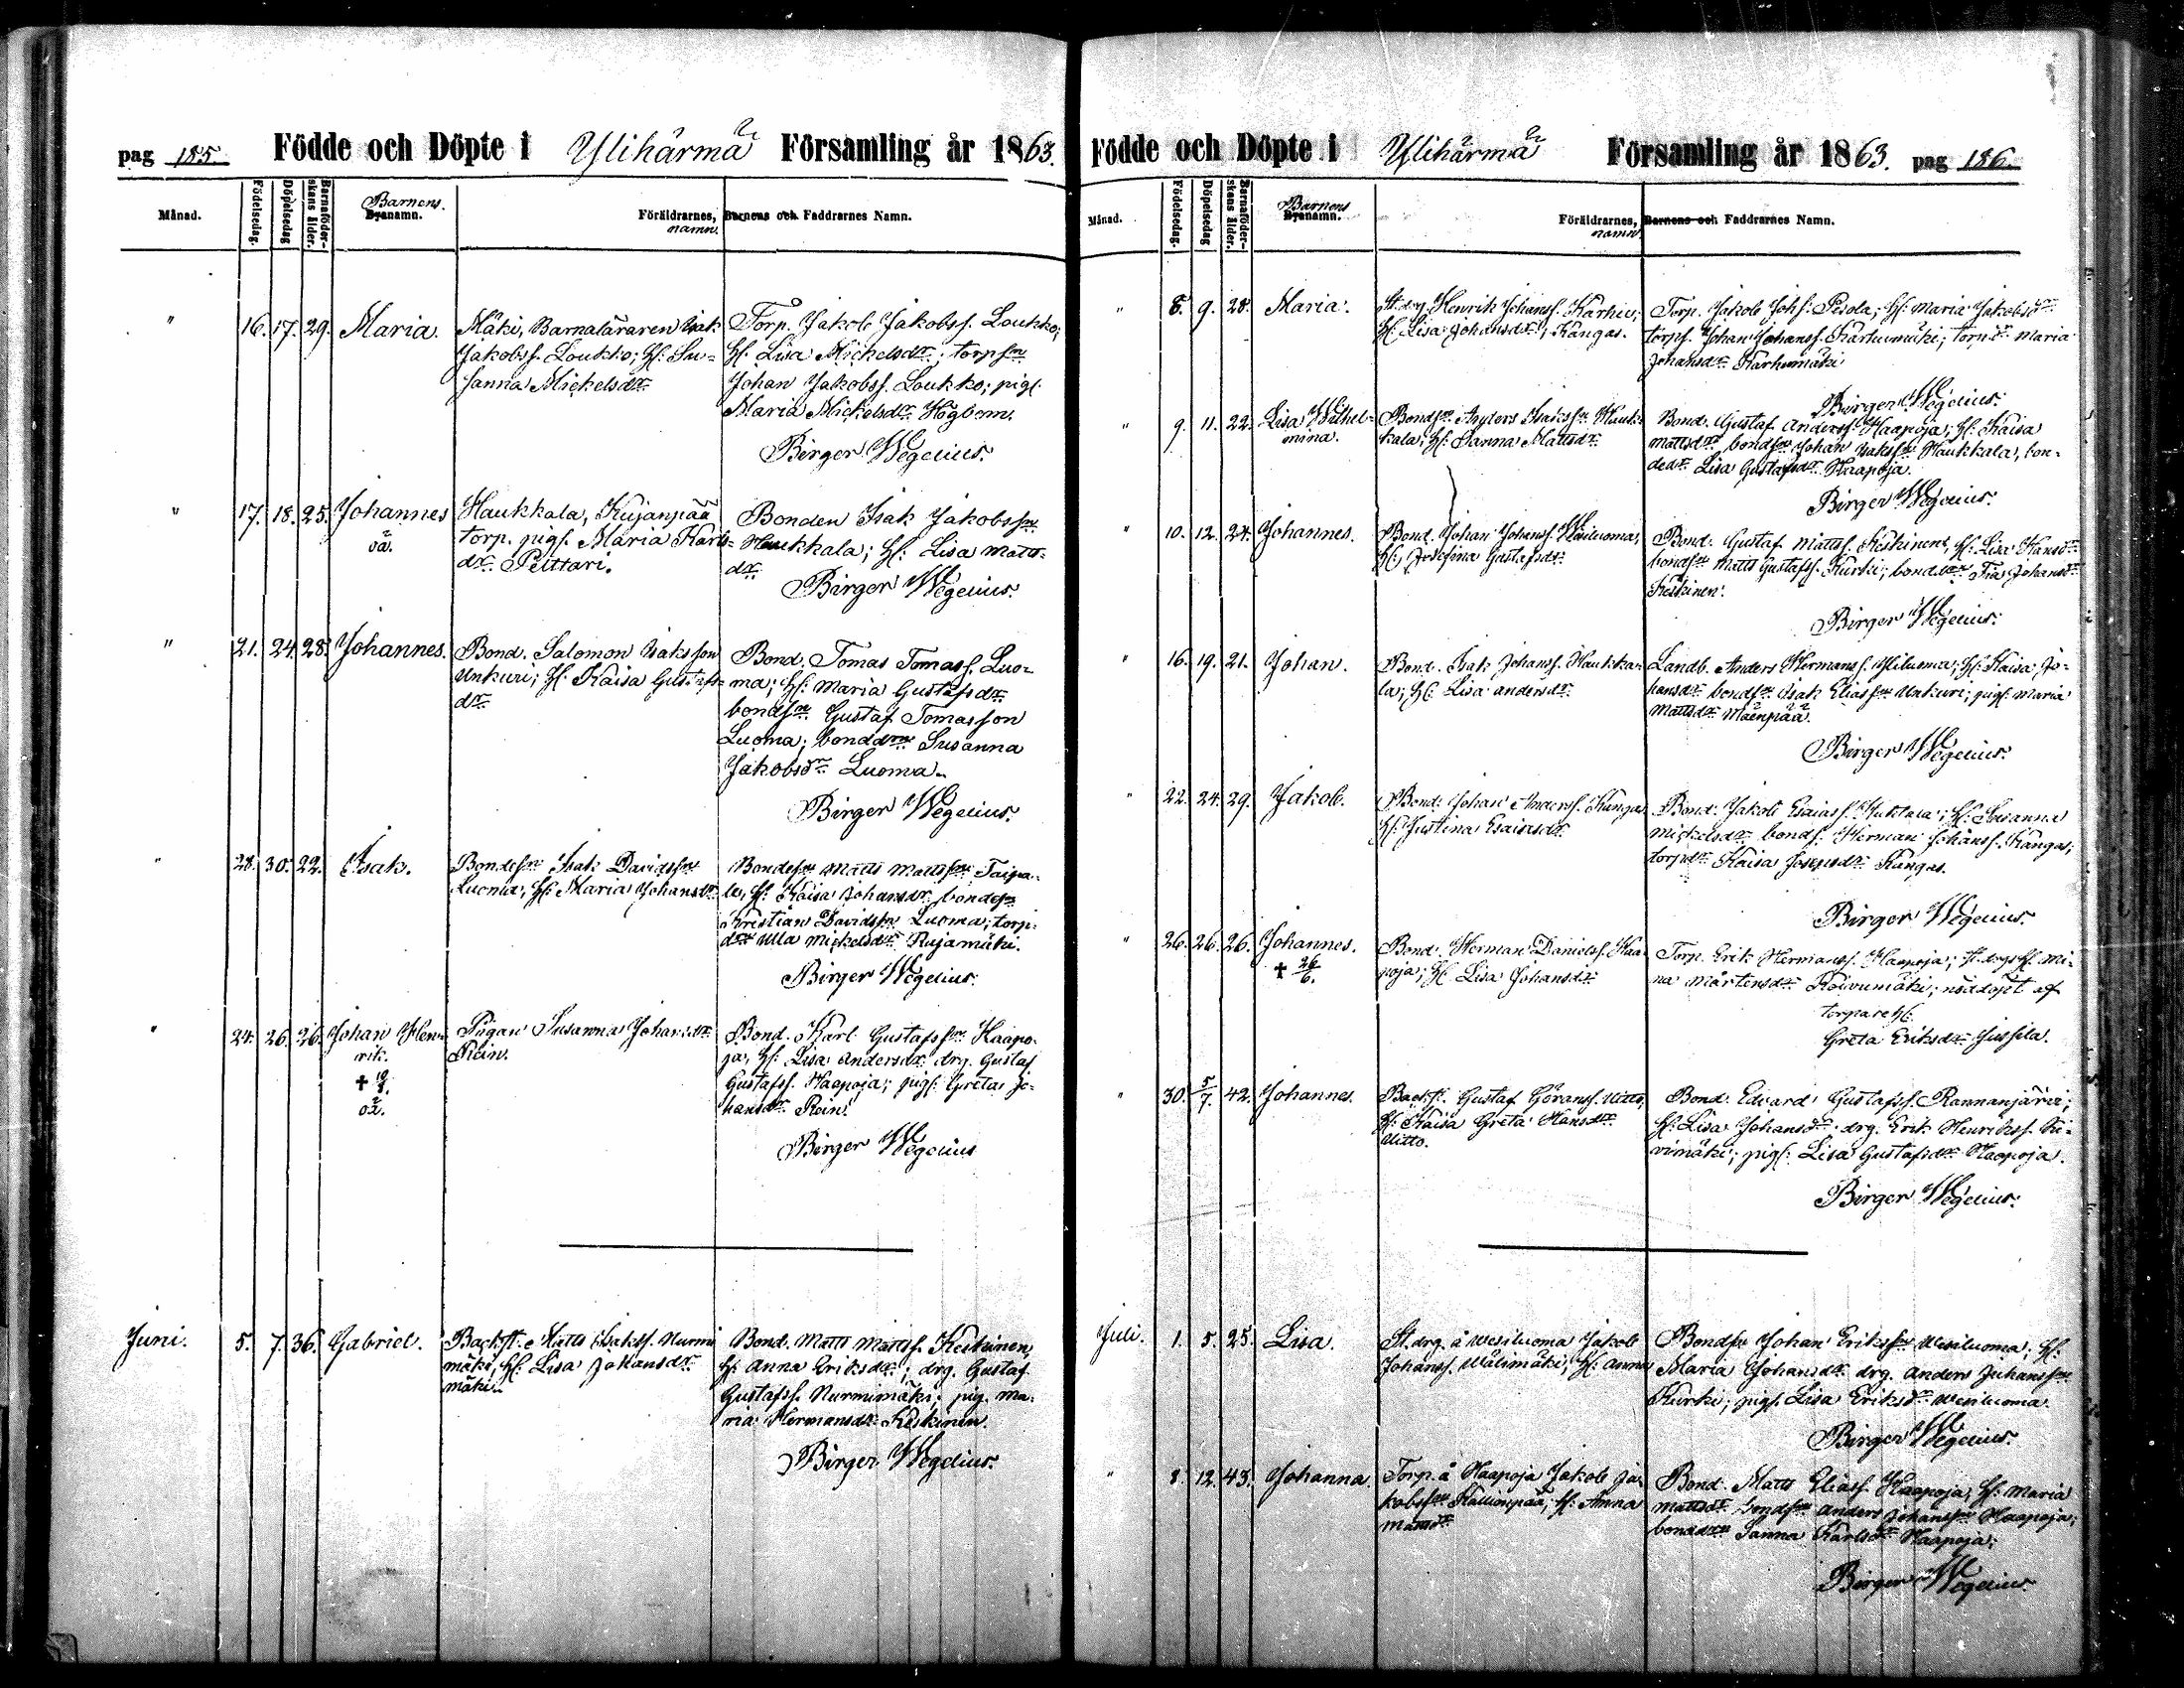 pag 185 Födde och Döpte i Ylihärmä Församling år 1863.
Månad. Födelsedag. Döpelsedag Barnaföderskans ålder. Barnens Byanamn. Föräldrarnes, namn. Barnens och Faddrarnes Namn.
" 16. 17. 29. Maria.
Mäki, Barnaläraren Isak
Jakobss. Loukko; H: Su-
sanna Mickelsdr
Torp. Jakob Jakobss. Loukko;
H: Lisa Mickelsdr; torpsn
Johan Jakobss. Loukko; pig.
Maria Mickelsdr Högbom.
Birger Wegelius.
" 17. 18. 25. Johannes
oä.
Haukkala, Kujanpää
torp. pigs. Maria Karls-
dr Peittari.
Bonden Isak Jakobssn
Haukkala; H: Lisa Matts-
dr
Birger Wegelius.
" 21. 24. 28. Johannes.
Bond. Salomon Isaksson
Unkuri; H: Kaisa Gustafs-
dr
Bond. Tomas Tomass. Luo-
ma; H: Maria Gustafsdr
bondsn Gustaf Tomasson
Luoma; bonddrn Susanna
Jakobsdr Luoma.
Birger Wegelius.
" 28. 30. 22. Isak.
Bondesn Isak Davidssn
Luoma; H: Maria Johansdr
Bondesn Matts Mattssn Taipa-
le, H: Kaisa Johansdr bondesn
Kristian Davidssn Luoma; torp-
drn Ulla Mickelsdr Rujamäki.
Birger Wegelius.
" 24. 26. 26. Johan Hen-
rik.
oä.
Pigan Susanna Johansdr
Rein.
Bond. Karl Gustafssn Haapo-
ja; H: Lisa Andersdr drg. Gustaf
Gustafss. Haapoja; pig. Greta Jo-
hansdr Rein.
Birger Wegelius
Juni. 5. 7. 36. Gabriel.
Backst. e Matts Isakss. Nurmi
mäki, H: Lisa Johansdr
mäki.
Bond. Matts Mattss. Keskinen,
H: Anna Eriksdr; drg. Gustaf
Gustafss. Nurmimäki; pig. Ma-
ria Hermansdr Keskinen.
Birger Wegelius.
Födde och Döpte i Ylihärmä Församling år 1863. pag 186.
Månad. Födelsedag. Döpelsedag Barnaföderskans ålder. Barnens Byanamn. Föräldrarnes, namn Barnens och Faddrarnes Namn.
" 8. 9. 28. Maria.
St. drg Henrik Johanss. Karhu;
H: Lisa Johansdr, Kangas.
Torp. Jakob Johs. Pesola; H: Maria Jakobsdr
torps. Johan Johanss. Karhumäki; torpdr Maria
Johansdr Karhumäki
Birger Wegelius.
" 9. 11. 22. Lisa Wilhel-
mina.
Bondsn Anders Isakssn Hauk-
kala; H: Sanna Mattsdr
Bond. Gustaf Anderss. Haapoja; H: Kaisa
Mattsdr bondsn Johan Isakssn Haukkala, bon-
dedr Lisa Gustafsdr Haapoja.
Birger Wegelius.
" 10. 12. 24. Johannes.
Bond. Johan Johanss.
H: Josefina Gustafsdr
Bond. Gustaf Mattss. Keskinen, H: Lisa Hansdr
bondsn Matts Gustafss. Kurki; bonddrn Fia Johansdr
Keskinen.
Birger Wegelius.
" 16. 19. 21. Johan.
Bond. Isak Johanss. Haukka-
la; H: Lisa Andersdr
Landb. Anders Hermanss. Yliluoma; H: Kaisa Jo-
hansdr bondsn Isak Eliassn Unkuri; pigs. Maria
Mattsdr Mäenpää.
Birger Wegelius.
" 22. 24. 29. Jakob.
Bond. Johan Anderss. Kangas
H: Justina Esaiasdr
Bond. Jakob Esaiass. H: Susanna
Mickelsdr bonds. Herman Johanss. Kangas;
torpdr Kaisa Josepsdr Kangas.
Birger Wegelius.
" 26. 26. 26. Johannes.
✝ 26/6.
Bond. Herman Daniels. Haa-
poja; H: Lisa Johansdr
Torp. Erik Hermanss. Haapoja; H: Mi-
na Mårtensdr Koivumäki; nöddöpt af
torpare H:
Greta Eriksdr Jussila.
" 30. 5/7. 42. Johannes.
Backst. Gustaf Göranss. Uitto,
H: Kaisa Greta Hansdr
Uitto.
Bond. Edvard Gustafss. Rannanjärvi;
H: Lisa Johansdr drg. Erik Henrikss. Ki-
vimäki; pigs. Lisa Gustafsdr Haapoja.
Birger Wegelius.
Juli. 1. 5. 25. Lisa.
St. drg. å Wesiluoma Jakob
Johanss. Wälimäki; H: Anna
Bondsn Johan Erikssn Wesiluoma; H:
Maria Johansdr drg. Anders Johanssn
Kurki; pigs. Lisa Eriksdr Wesiluoma
Birger Wegelius.
" 8. 12. 43. Johanna.
Torp. å Haapoja Jakob Ja-
kobssn Kallionpää; H: Anna
Mattsdr
Bond. Matts Eliass. Haapoja; H: Maria
Mattsdr bondsn Anders Johanssn Haapoja;
bonddrn Sanna Karlsdr Haapoja;
Birger Wegelius